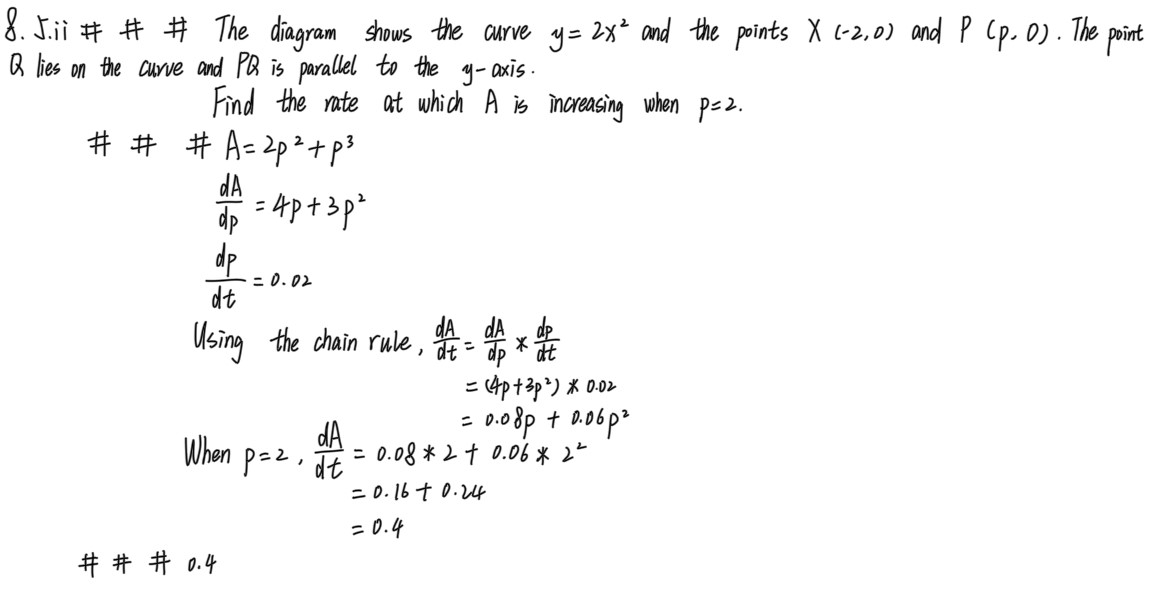 8. 5.ii # # # The diagram shows the curve y = 2x² and the points X (-2,0) and P (p, 0). The point
Q lies on the curve and PQ is parallel to the y-axis.
Find the rate at which A is increasing when p=2.
# # # A = 2p² + p³
dA/dp = 4p + 3p²
dp/dt = 0.02
Using the chain rule, dA/dt = dA/dp * dp/dt
= (4p+3p²) * 0.02
= 0.08p + 0.06p²
When p=2, dA/dt = 0.08 * 2 + 0.06 * 2²
= 0.16 + 0.24
= 0.4
# # # 0.4